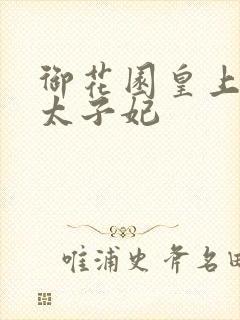 御花园皇上
太子妃
唯浦史斧名田